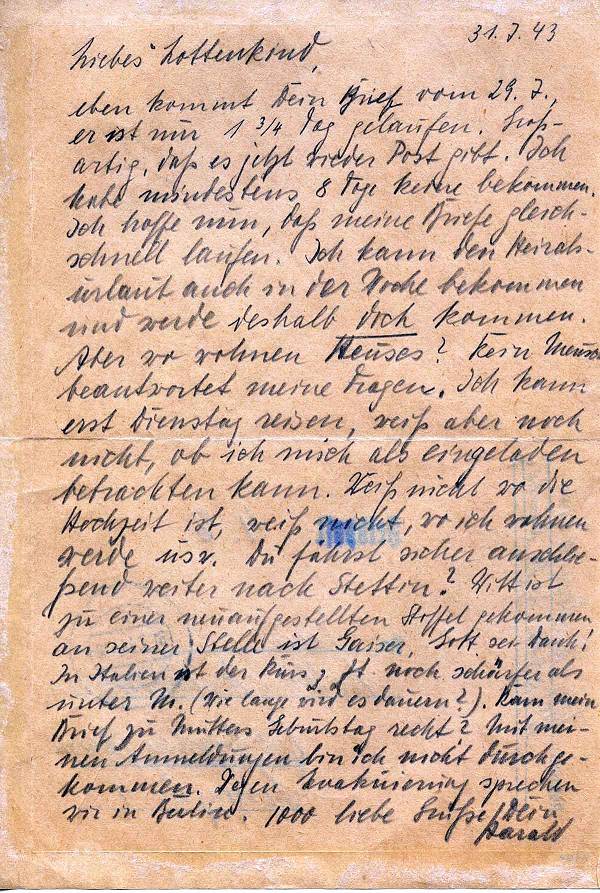 31. 7. 43
Liebes Lottenkind,
eben kommt Dein Brief vom 29. 7.,
er ist nur 1 3/4 Tag gelaufen. Groß-
artig, daß es jetzt wieder Post gibt. Ich
habe mindestens 8 Tage keine bekommen.
Ich hoffe nun, daß meine Briefe gleich-
schnell laufen. Ich kann den Heirats-
urlaub auch in der Woche bekommen
und werde deshalb doch kommen.
Aber wo wohnen Heuses? Kein Mensch
beantwortet meine Fragen. Ich kann
erst Dienstag reisen, weiß aber noch
nicht, ob ich mich als eingeladen
betrachten kann. Weiß nicht wo die
Hochzeit ist, weiß nicht, wo ich wohnen
werde usw. Du fährst sicher anschlie-
ßend weiter nach Stettin? Witt ist
zu einer neuaufgestellten Staffel gekommen
an seiner Stelle ist Gaiser, Gott sei Dank!
In Italien ist der Kurs z. Zt. noch schärfer als
unter M. (Wie lange wird es dauern?). Kam mein
Brief zu Mutters Geburtstag recht? Mit mei-
nen Anmeldungen bin ich nicht durchge-
kommen. Wegen Evakuierung sprechen
wir in Berlin. 1000 liebe Grüße! Dein
Harald